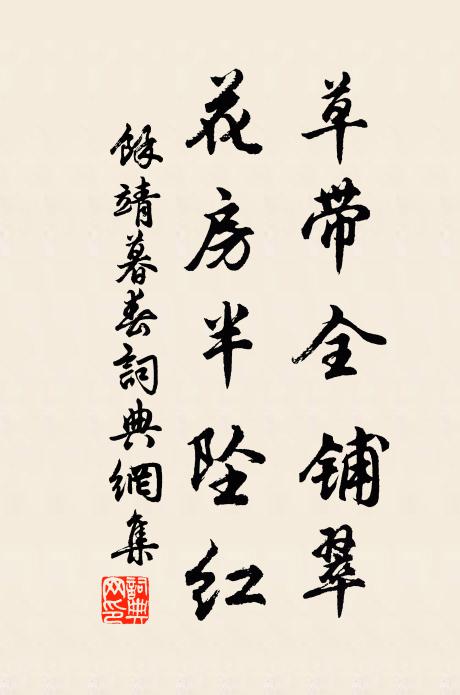 草带全铺翠
花房半坠红
餘靖暮春詞典網集
詞典网印